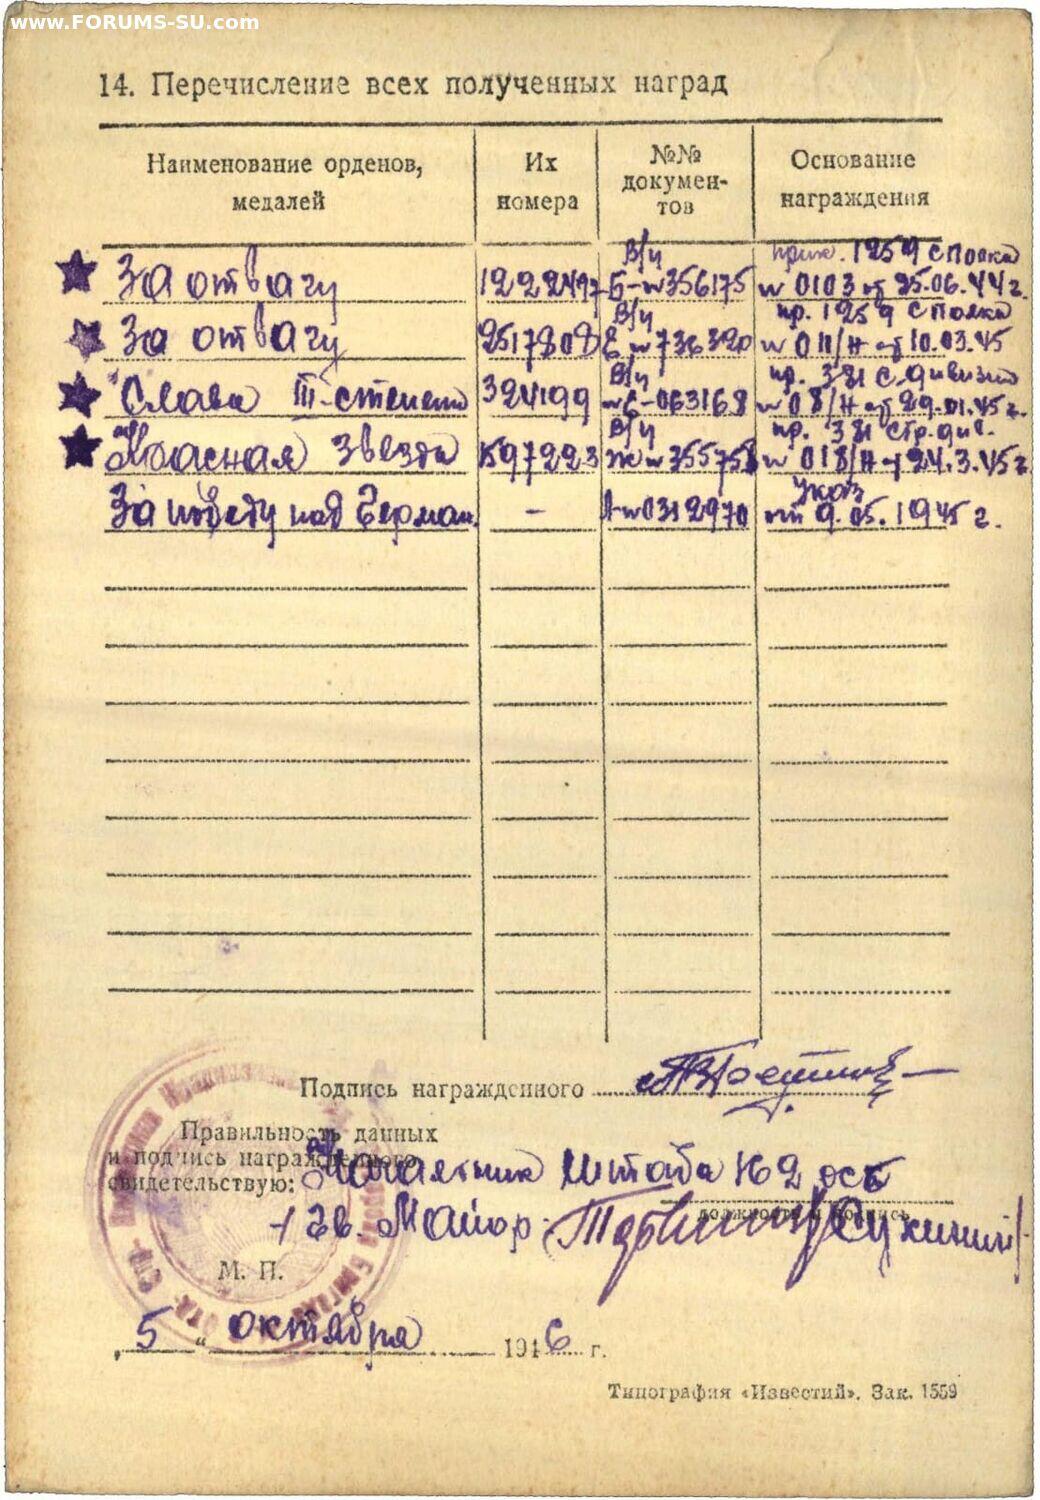 www.FORUMS-SU.com
14. Перечисление всех полученных наград
Наименование орденов, медалей
Их номера
№№ докумен-тов
Основание награждения
За отвагу 1222497 В/у Б-№356175 прик. 1259 с полка № 0103 от 25.06.44 г.
За отвагу 2517808 В/у Е №736320 пр. 1259 с полка № 011/н от 10.03.45
Слава III-степени 324199 В/у №Е-063168 пр. 381 с. дивизии № 08/н от 29.01.45 г.
Красная звезда 1597223 В/у Ж №355758 пр. 381 стр. див. № 018/н от 24.3.45 г.
За победу над Герман. - А-№0312970 указ от 9.05.1945 г.
Подпись награжденного
Правильность данных
и подпись награжденного
свидетельствую: Начальник штаба 162 осб
должность и подпись
гв. Майор Сухинин
М. П.
„5“ октября 1946 г.
Типография «Известий». Зак. 1559